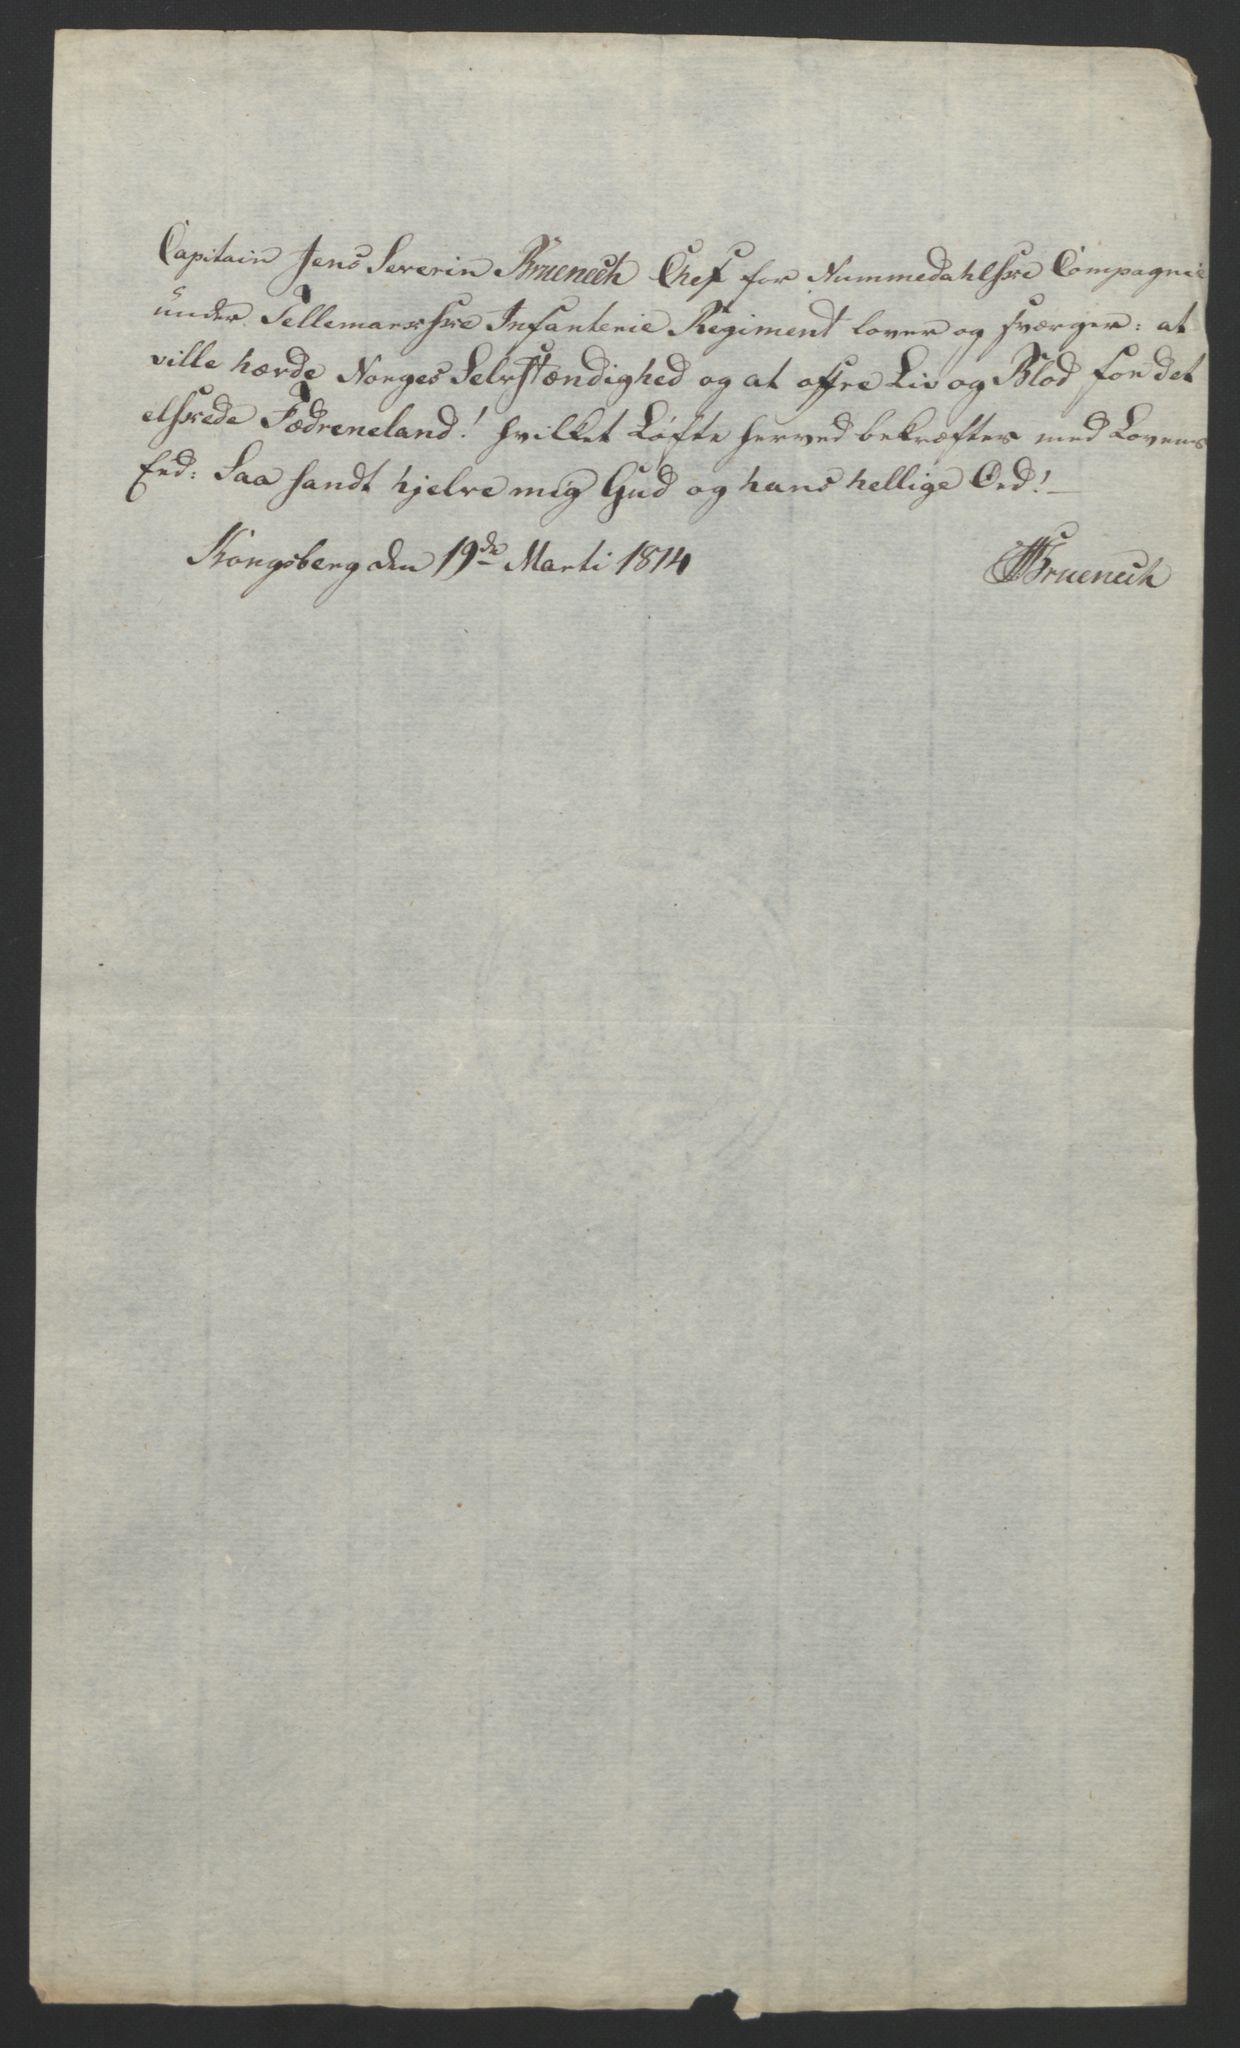 Capitain Jens Severin Bruenech Chef for Nummedahlske Compagnie
under Tellemarkske Infanterie Regiment lover og sværger: at
ville hævde Norges Selvstændighed og at offre Liv og Blod for det
elskede Fædreneland! hvilket Løfte herved bekræftes med Lovens
Eed: Saa sandt hjelpe mig Gud og hans hellige Ord!—
Kongsberg den 19de Marti 1814
JSBruenech